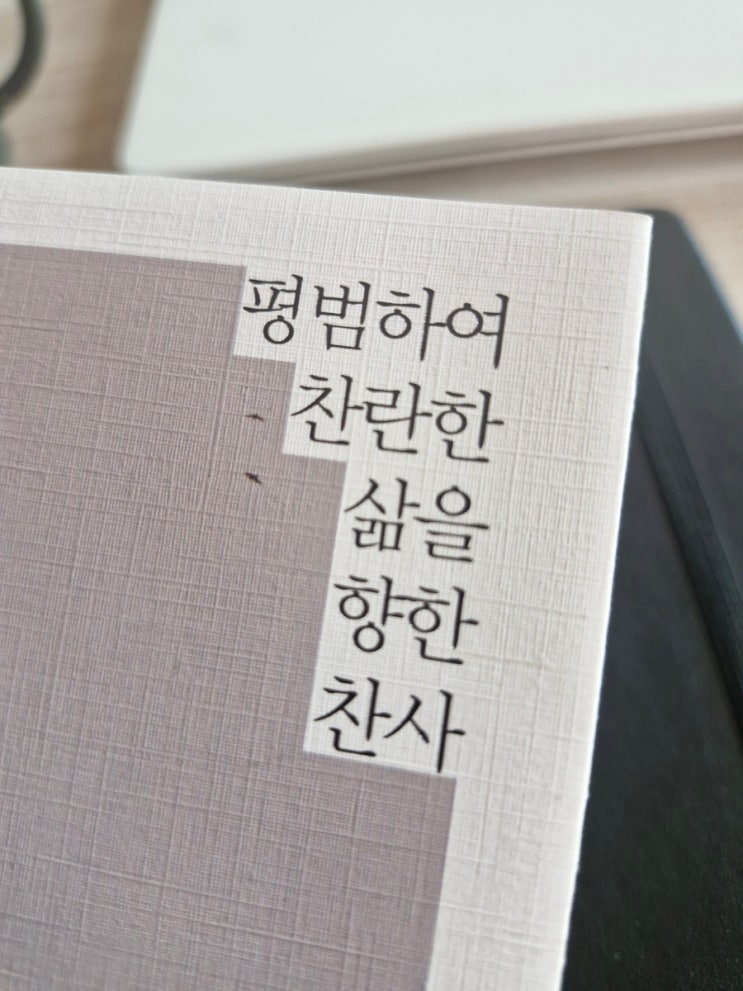 평범하여
찬란한
삶을
향한
찬사